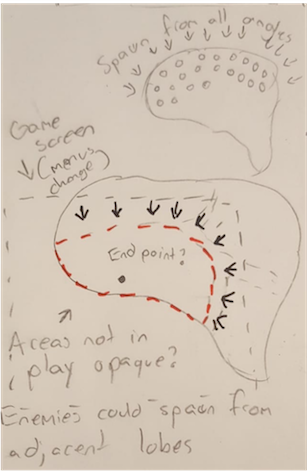 Spawn from all angles
Game
screen
(menus
change)
End point?
Areas not in
play opaque?
Enemies could spawn from
adjacent lobes